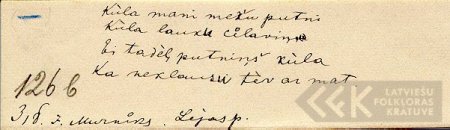 Kūla mani mežu putni
Kūla lauku cīlaviņa
Ei tadēļ putniņš kūla
Ka neklausu tēv ar mat
1266
3,8. J. Murnīks. Lejasp.
LATVIEŠU
FOLKLORAS
KRATUVE